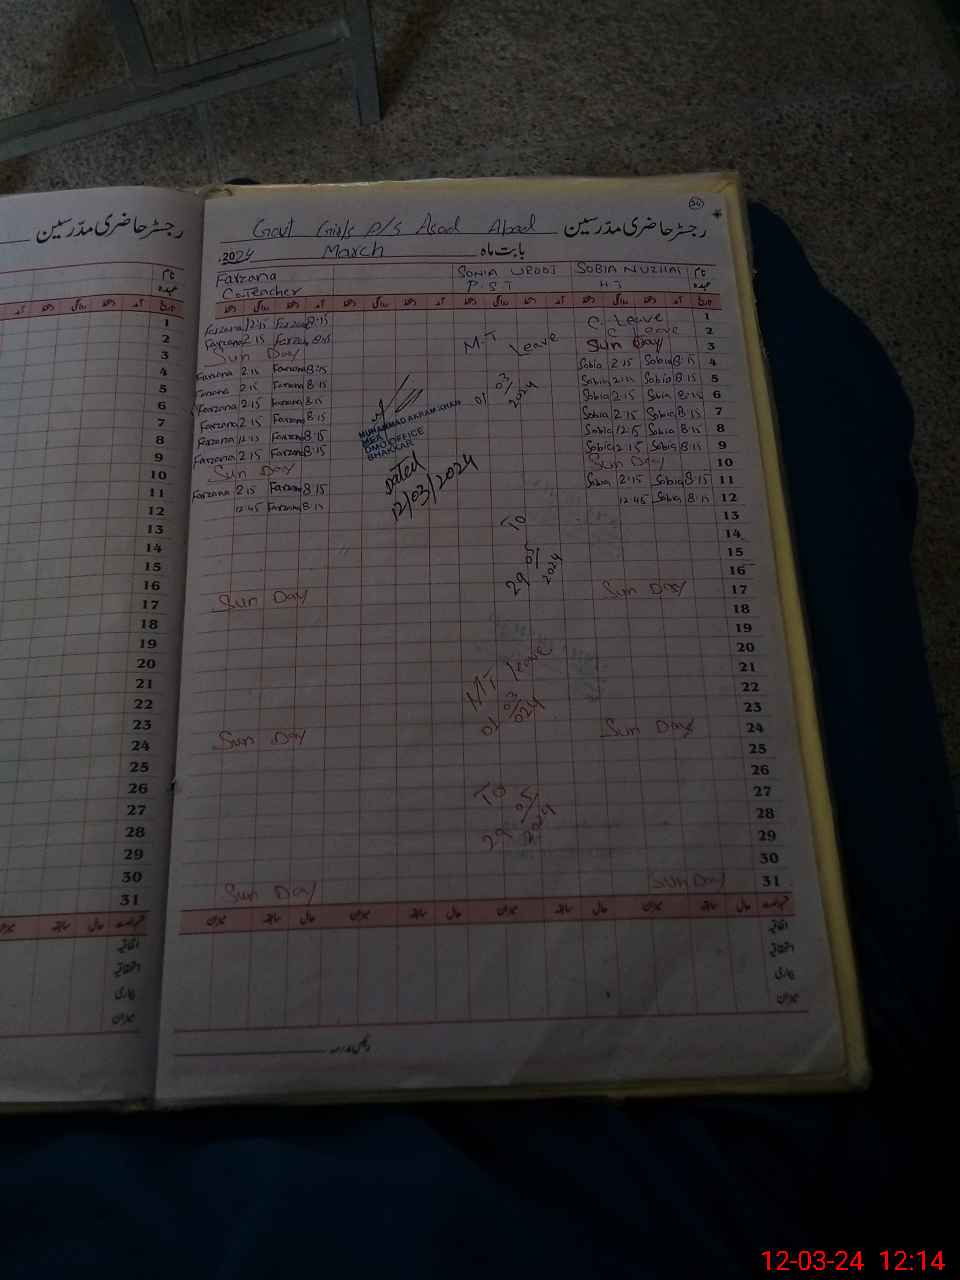 رجسٹر حاضری مدرسین
Govt Girls P/S Asad Abad رجسٹر حاضری مدرسین
2024 March بابت ماہ
Farzana SONIA UROOJ SOBIA NUZHAT نام
Co.Teacher P.S.T H.T عہدہ
تاریخ
1 Farzana 12:15 Farzana 8:15 C. Leave 1
2 Farzana 2:15 Farzana 8:15 M.T Leave C Leave 2
3 Sun Day Sun Day 3
4 Farzana 2:15 Farzana 8:15 Sobia 2:15 Sobia 8:15 4
5 Farzana 2:15 Farzana 8:15 01/03/2024 Sobia 2:15 Sobia 8:15 5
6 Farzana 2:15 Farzana 8:15 Sobia 2:15 Sobia 8:15 6
7 Farzana 2:15 Farzana 8:15 Sobia 2:15 Sobia 8:15 7
8 Farzana 12:15 Farzana 8:15 Sobia 12:15 Sobia 8:15 8
9 Farzana 2:15 Farzana 8:15 Sobia 2:15 Sobia 8:15 9
MUHAMMAD AKRAM KHAN
MEA
DMO OFFICE
BHAKKAR
Dated
12/03/2024
10 Sun Day Sun Day 10
11 Farzana 2:15 Farzana 8:15 Sobia 2:15 Sobia 8:15 11
12 12:45 Farzana 8:15 12:45 Sobia 8:15 12
13 TO 13
14 14
15 15
16 29 05/2024 16
17 Sun Day Sun Day 17
18 18
19 19
20 20
21 M.T Leave 21
22 22
23 01 03/2024 23
24 Sun Day Sun Day 24
25 25
26 26
27 TO 27
28 28
29 29 05/2024 29
30 30
31 Sun Day Sun Day 31
12-03-24 12:14